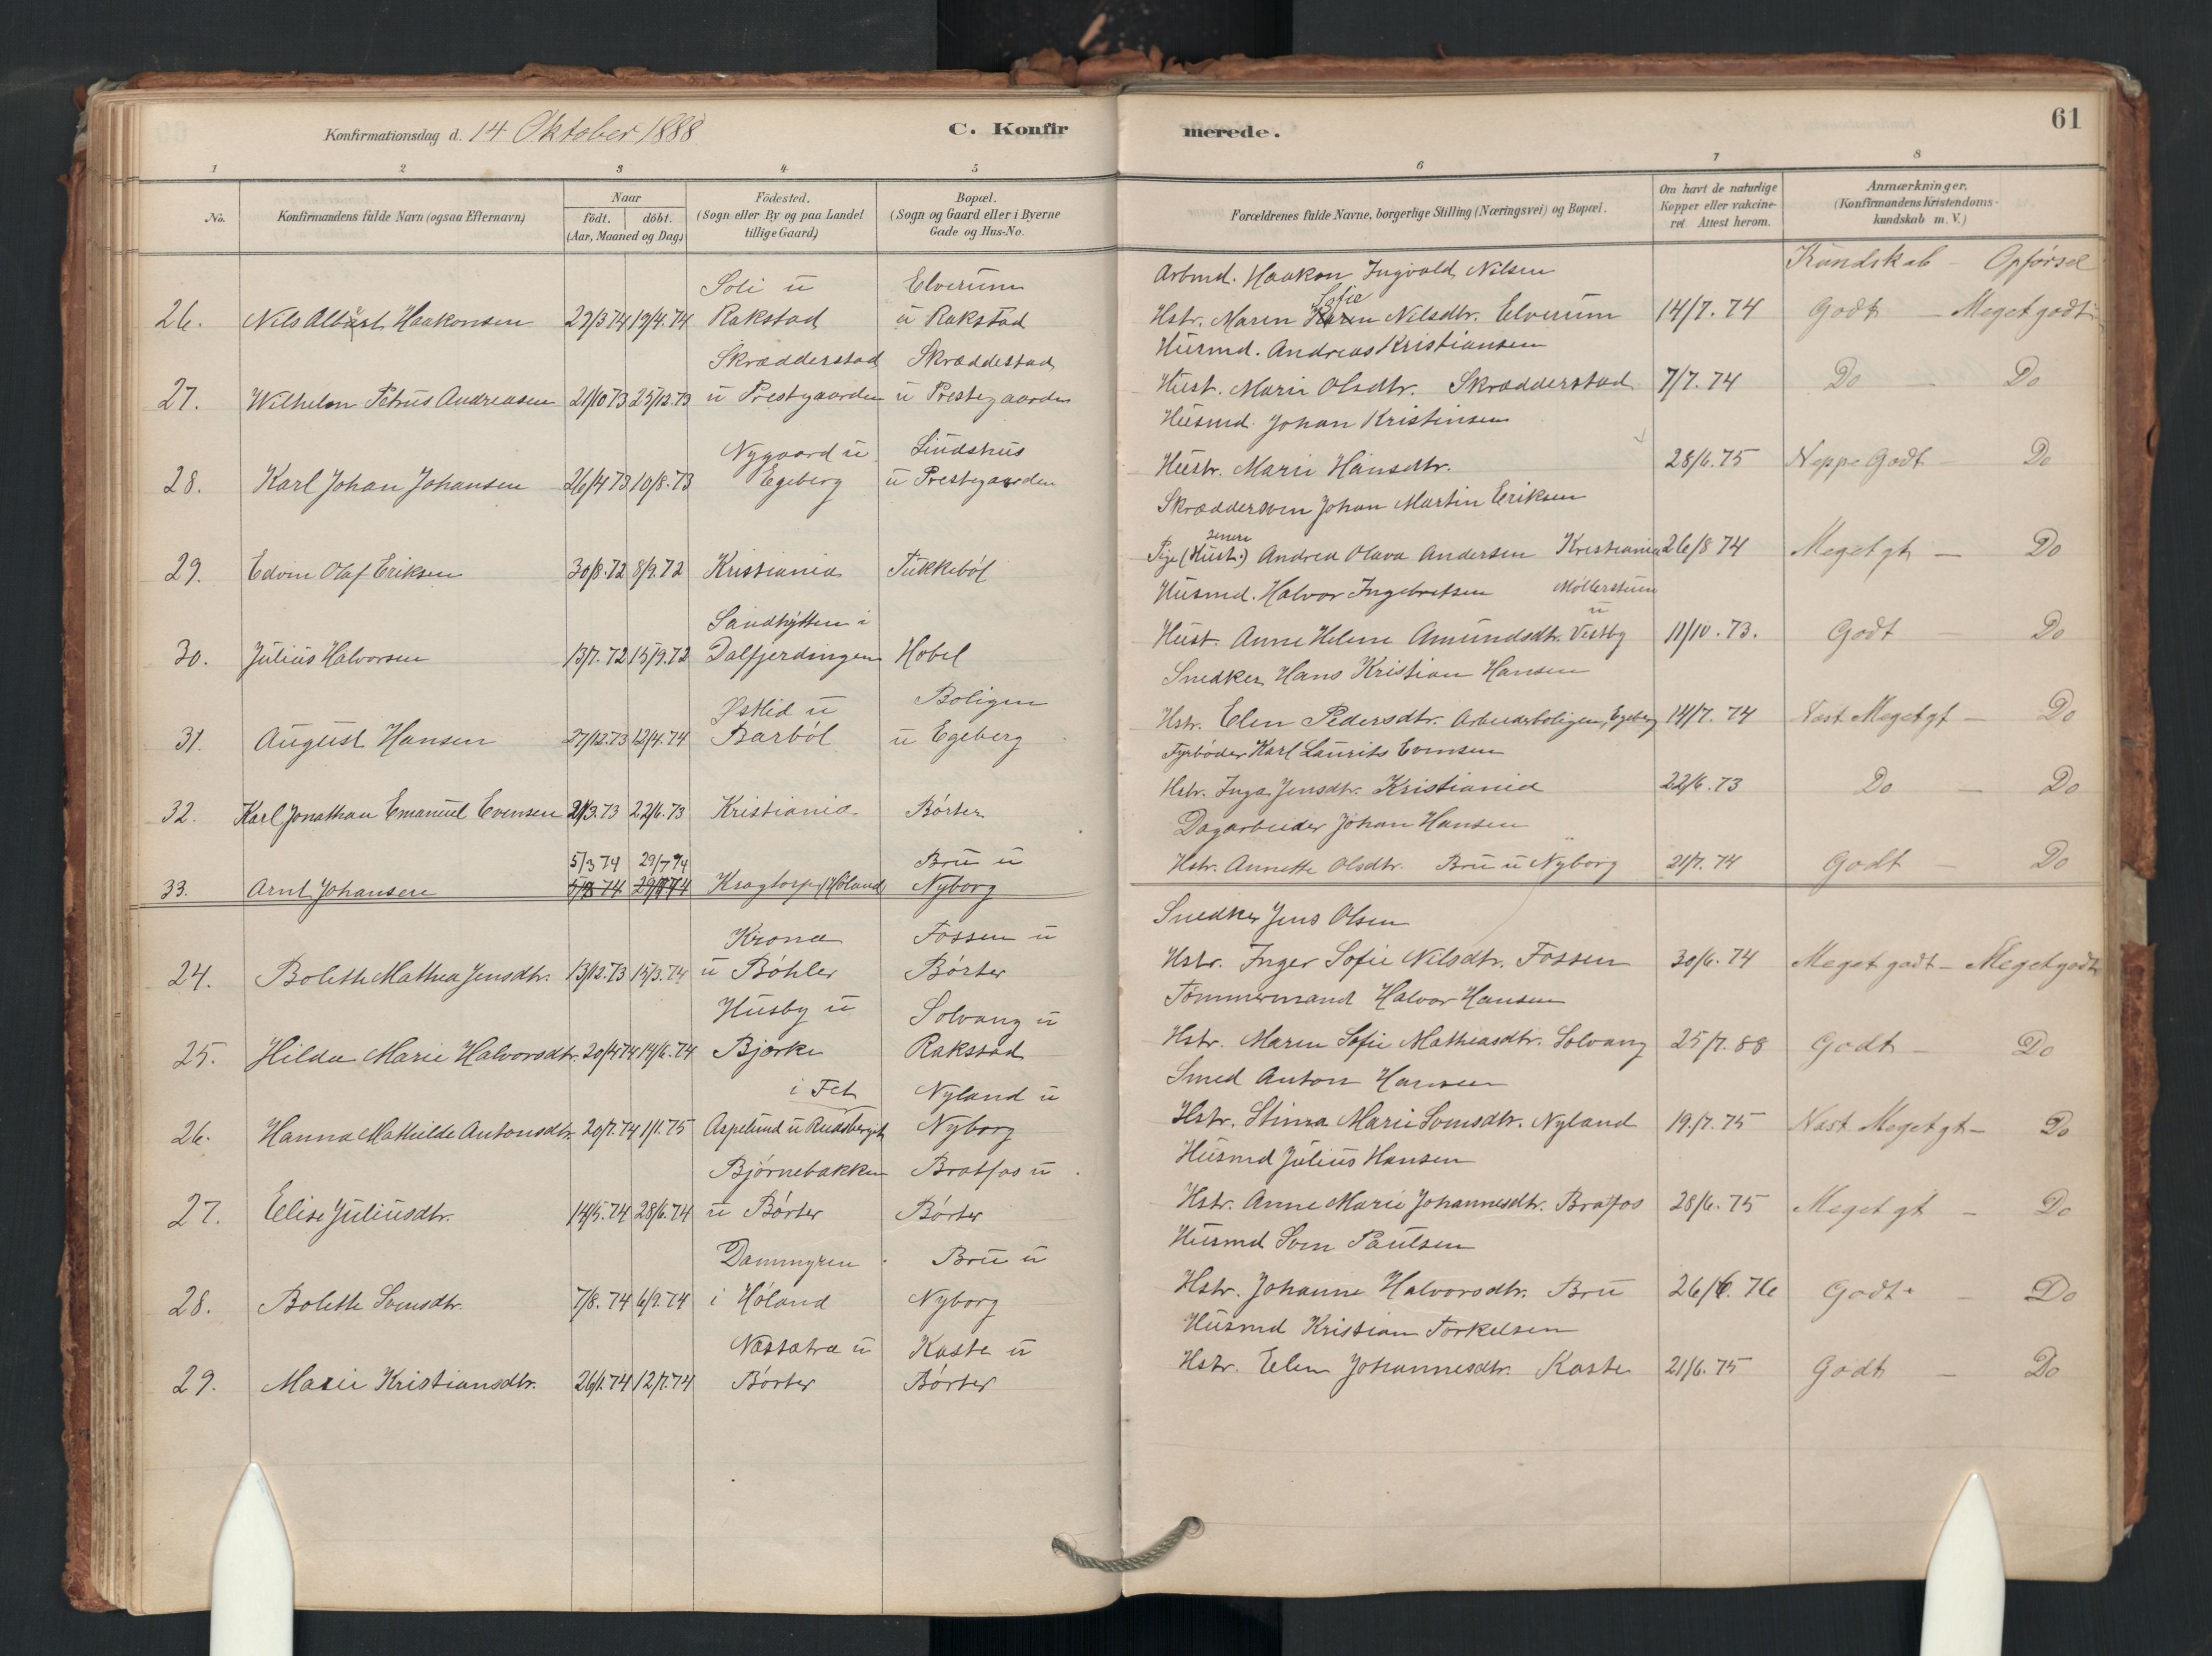 Konfirmationsdag d. 14 Oktober 1888. C. Konfirmerede. 61
1 2 3 4 5 6 7 8
No. Konfirmandens fulde Navn (ogsaa Efternavn) Naar födt. döbt. (Aar, Maaned og Dag) Födested. (Sogn eller By og paa Landet tillige Gaard) Bopæl. (Sogn og Gaard eller i Byerne Gade og Hus-No. Forældrenes fulde Navne, borgerlige Stilling (Næringsvei) og Bopæl. Om havt de naturlige Kopper eller vakcineret Attest herom. Anmærkninger. (Konfirmandens Kristendomskundskab m. V.)
Kundskab - Opførsel
Soli u Elverum Arbmd. Haakon Ingvald Nilsen
26. Nils Albert Haakonsen 29/3 74 19/4.74 Rakstad u Rakstad Hstr. Maren Sofie Nilsdtr. Elverum 14/7.74 Godt - Meget godt
Skrædderstad Skræddestad Husmd. Andreas Kristiansen
27. Wilhelm Petrus Andreasen 21/10 73 25/12.73 u Prestgaarden u Prestegaarden Hust. Marie Olsdtr. Skrædderstad 7/7.74 Do - Do
Nygaard u Lundshus Husmd. Johan Kristinsen
28. Karl Johan Johansen 26/4 73 10/8.73 Egeberg u Prestegaarden Hustr. Marie Hansdtr. 28/6.75 Neppe Godt - Do
Skræddersven Johan Martin Eriksen
29. Edvin Olaf Eriksen 30/8.72 8/9.72 Kristiania Tukkebøl Pige (senere Hust.) Andrea Olava Andersen Kristiania 26/8 74 Meget gt - Do
Sandhytten i Husmd. Halvor Ingebretsen Møllerstuen
30. Julius Halvorsen 13/7.72 15/9.72 Dalfjerdingen Hobel Hust. Anne Helene Amundsdtr. u Vestby 11/10.73. Godt - Do
Østlid u Boligen Snedker Hans Kristian Hansen
31. August Hansen 27/12.73 12/4.74 Barbøl u Egeberg Hstr. Elen Pedersdtr. Arbeiderboligen, Egeberg 14/7.74 Næst Meget gt - Do
Fyrbøder Karl Laurits Evensen
32. Karl Jonathan Emanuel Evensen 21/3.73 22/6.73 Kristiania Børter Hstr. Inga Jensdtr. Kristiania 22/6.73 Do - Do
5/3 74 29/7 74 Bru u Dagarbeider Johan Hansen
33. Arnt Johansen Kragtorp (Høland) Nyborg Hstr. Annette Olsdtr. Bru u Nyborg 21/7.74 Godt - Do
Krona Fossen u Snedker Jens Olsen
24. Bolette Mathea Jensdtr. 13/12.73 15/3.74 u Bøhler Børter Hstr. Inger Sofie Nilsdtr. Fossen 30/6.74 Meget godt - Meget godt
Husby u Solvang u Tømmermand Halvor Hansen
25. Hilda Marie Halvorsdtr. 20/4 74 14/6.74 Bjørke Rakstad Hstr. Maren Sofie Mathiasdtr. Solvang 25/7.88 Godt - Do
i Fet Nyland u Smed Anton Hansen
26. Hanna Mathilde Antonsdtr. 20/7.74 1/1.75 Aspelund u Rudsberget Nyborg Hstr. Stina Marie Svensdtr. Nyland 19/7.75 Næst Meget gt - Do
Bjørnebakken Bratfos u Husmd Julius Hansen
27. Elise Juliusdtr. 14/5.74 28/6.74 u Børter Børter Hstr. Anne Marie Johannesdtr. Bratfos 28/6.75 Meget gt - Do
Dammyren Bru u Husmd Sven Paulsen
28. Bolette Svensdtr. 7/8.74 6/9.74 i Høland Nyborg Hstr. Johanne Halvorsdtr. Bru 26/6.76 Godt - Do
Næssætra u Kaste u Husmd Kristian Torkelsen
29. Marie Kristiansdtr. 26/1.74 12/7.74 Børter Børter Hstr. Elen Johannesdtr. Kaste 21/6.75 Godt - Do